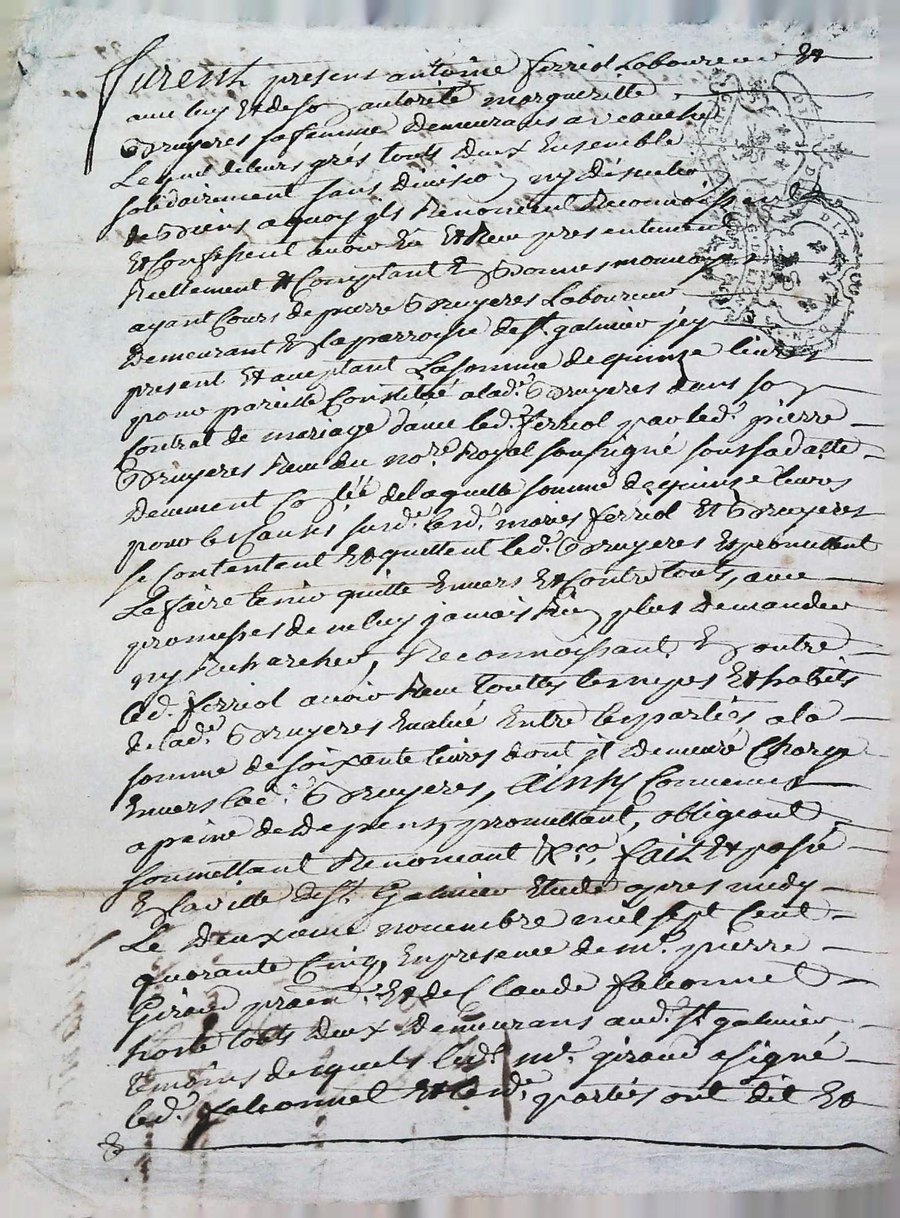 furent presens antoine ferriol Laboureur Et
avec luy Et de so autorité margueritte
Bruyeres sa femme Demeurans a
Lesquel de leurs grés touts Deux Ensemble
solidairement sans Divisio ny
de Biens aquoy ils Renoncent Reconnoissent
Et Confessent avoir Eû Et Receu presentement
Reellement Et Comptant En Bonnes monnoyes
ayant Cours de pierre Bruyeres Laboureur
Demeurant En la parroisse de St. galmier jcy
present Et aceptant La somme de quinze livres
pour pareille Constituée a lade. Bruyeres dans so
Contrat de mariage d'avec led. ferriol par led. pierre
Bruyeres Receu du nore. Royal soussigné sous sa datte
Deuement de laquelle somme de quinze livres
pour les Causes susd. lesd. mariés ferriol Et Bruyeres
se Contentent Et quittent led. Bruyeres Et promettent
Le faire tenir quitte Envers Et Contre touts, avec
promesses de ne luy jamais Rie plus Demander
ny Rechercher, Reconnoissant En outre
led. ferriol avoir Receu touttes les nipes Et habits
de lade. Bruyeres Evalué Entre les parties a la
somme de soixante livres dont jl Demeure Chargé
Envers lade. Bruyeres, Ainsy Convenu
a peine de Depens, promettant, obligeant
soumettant Renoncant &ca. fait Et passé
En la ville de St. Galmier Etude apres midy
Le Deuxieme novembre mil sept Cent
quarante Cinq, En presence de mr. pierre
Giraud Et de Claude falconnet
hoste touts Deux Demeurans aud. St galmier,
temoins desquels led. mr. giraud a signé
led. falconnet Et lesd. parties ont dit Et